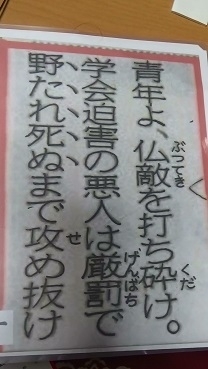 青年よ、仏敵を打ち砕け。
学会迫害の悪人は厳罰で
野たれ死ぬまで攻め抜け